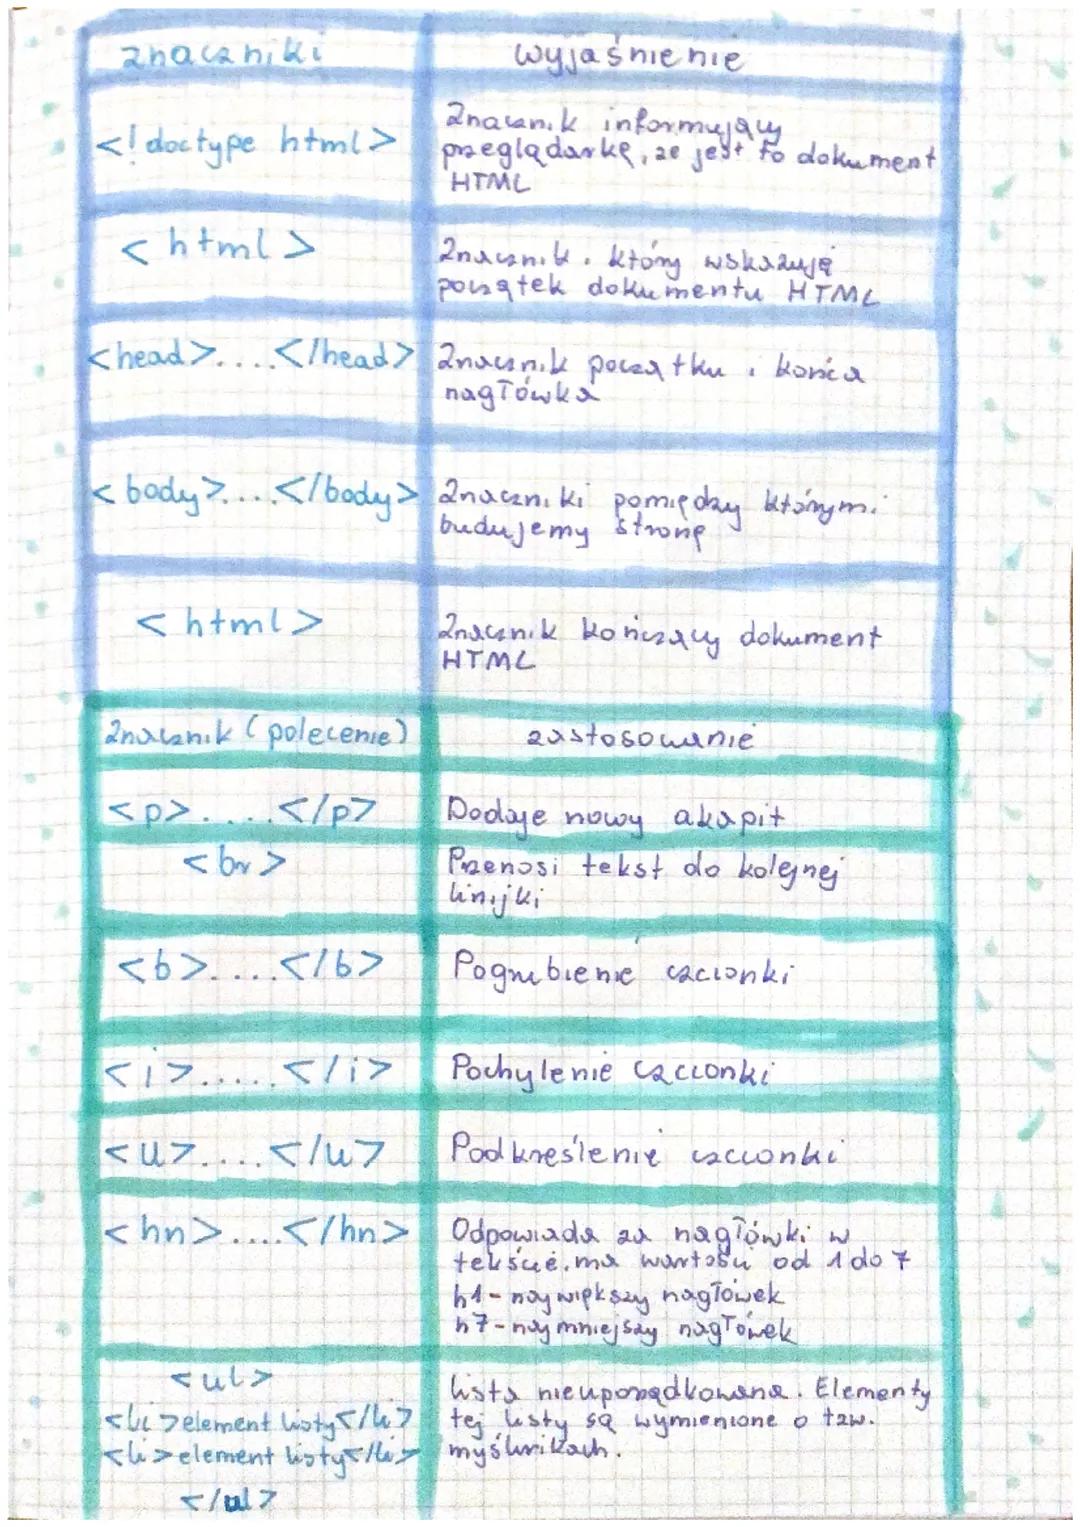 znaczniki wyjaśnienie
<!doctype html> Znacznik informujący
przeglądarkę, że jest to dokument
HTML
<html> Znacznik, który wskazuję
początek dokumentu HTML
<head>....</head> Znacznik początku i końca
nagłówka
<body>....</body> Znaczniki pomiędzy którymi
budujemy stronę
<html> Znacznik kończący dokument
HTML
Znacznik (polecenie) zastosowanie
<p>.....</p> Dodaje nowy akapit
<br> Przenosi tekst do kolejnej
linijki
<b>....</b> Pogrubienie czcionki
<i>.....</i> Pochylenie czcionki
<u>....</u> Podkreślenie czcionki
<hn>....</hn> Odpowiada za nagłówki w
tekście. ma wartości od 1 do 7
h1 - największy nagłówek
h7 - najmniejszy nagłówek
<ul> lista nieuporządkowana. Elementy
<li>element listy</li> tej listy są wymienione o tzw.
<li>element listy</li> myślnikach.
</ul>